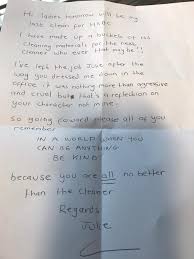 Hi ladies tomorrow will be my
last clean for HSBC
I have made up 2 buckets of
cleaning materials for the next
cleaner who ever that may be!!
I've left the job Julie after the
way you dressed me down in the
office it was nothing more than agressive
and cruel but that's a reflection on
your character not mine.
So going foward please all of you
remember
IN A WORLD WHEN YOU
CAN BE ANYTHING
BE KIND
because you are all no better
than the cleaner
Regards
Julie